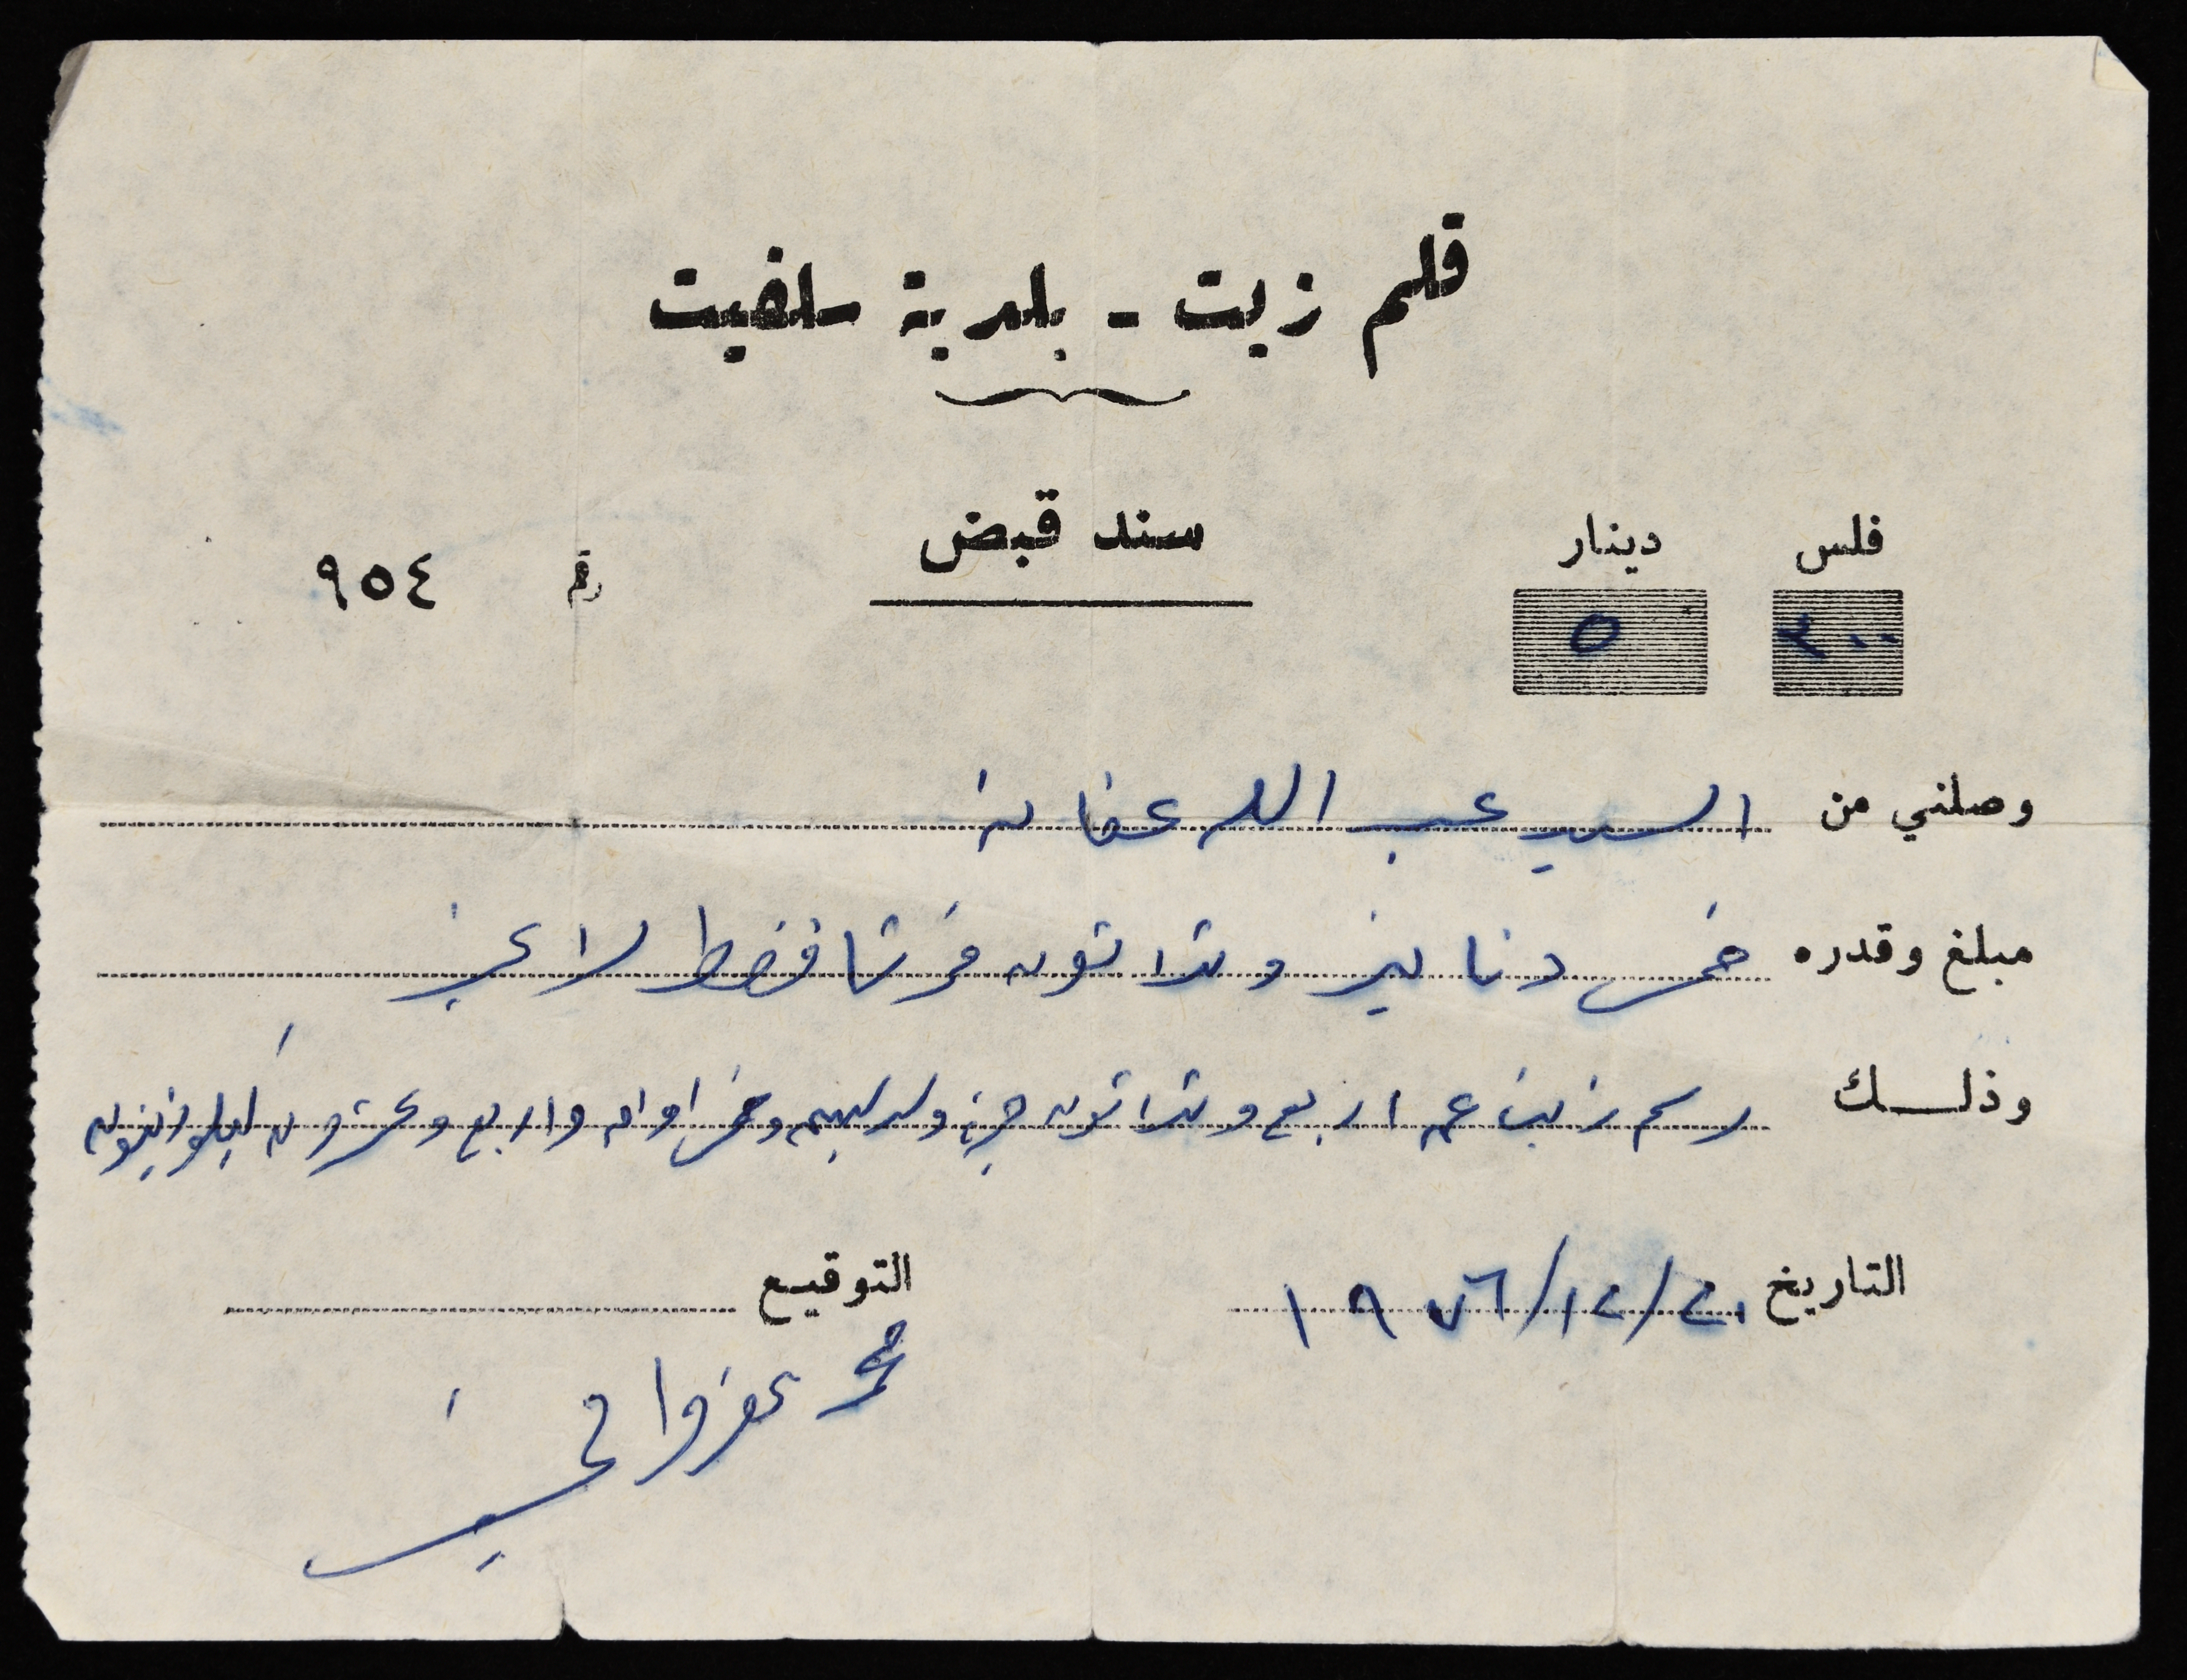 قلم زيت - بلدية سلفيت
سند قبض
فلس دينار
رقم ٩٥٤
٣٠٠ ٥
وصلني من السيد عبد الله عفانه
مبلغ وقدره خمس دنانير وثلاثون قرشا فقط لا غير
وذلك رسم زيت عن اربع وثلاثون جره وخمس اواق واربع وعشرون كيلو زيتون
التاريخ ٢٠/١٢/١٩٧٦
التوقيع
محمد